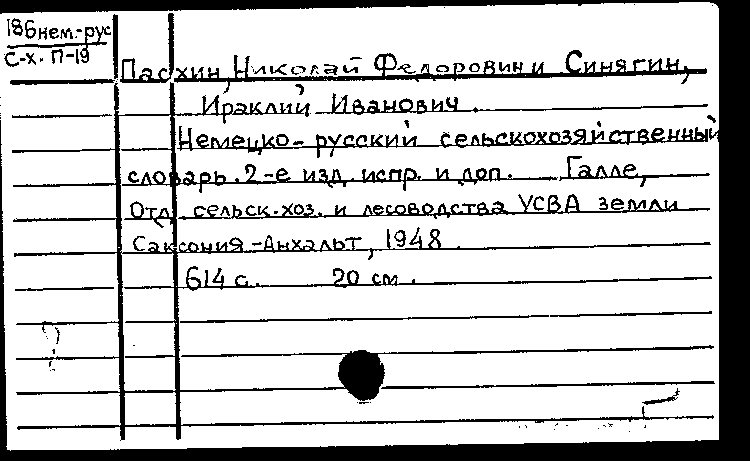 186нем.-рус
С-х. П-19
Пасхин, Николай Федорович и Синягин,
Ираклий Иванович.
Немецко-русский сельскохозяйственный
словарь. 2-е изд. испр. и доп. Галле,
Отд. сельск.-хоз. и лесоводства УСВА земли
Саксония-Анхальт, 1948.
614 с. 20 см.